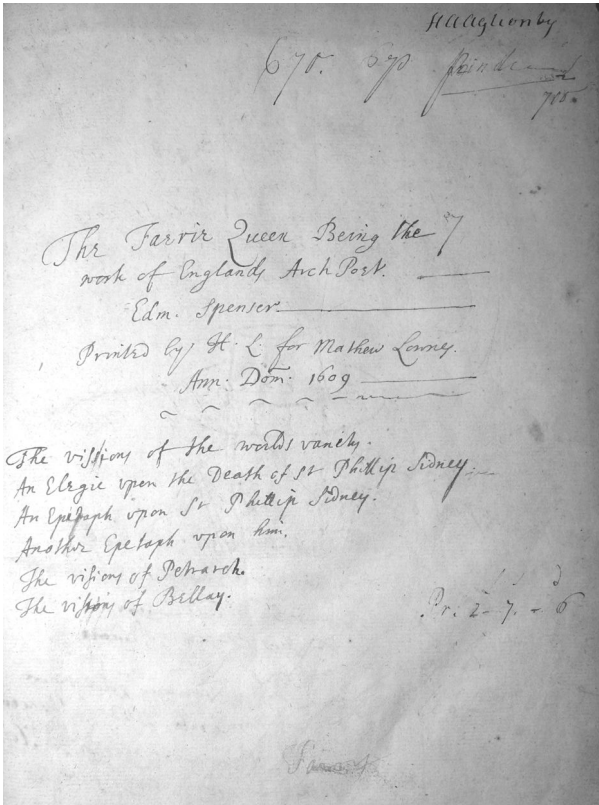 HA Aglionby
670.
705.
The Faerie Queen Being the
work of Englands Arch Poet.
Edm. Spenser.
Printed by H. L. for Mathew Lownes.
Ann. Dom. 1609
The vissions of the worlds vanety.
An Elegie vpon the Death of Sr Phillip Sidney.
An Epetaph vpon Sr Phillip Sidney.
Another Epetaph vpon him.
The visions of Petrarch.
The visions of Bellay.
Pr. 2 - 7. - 6